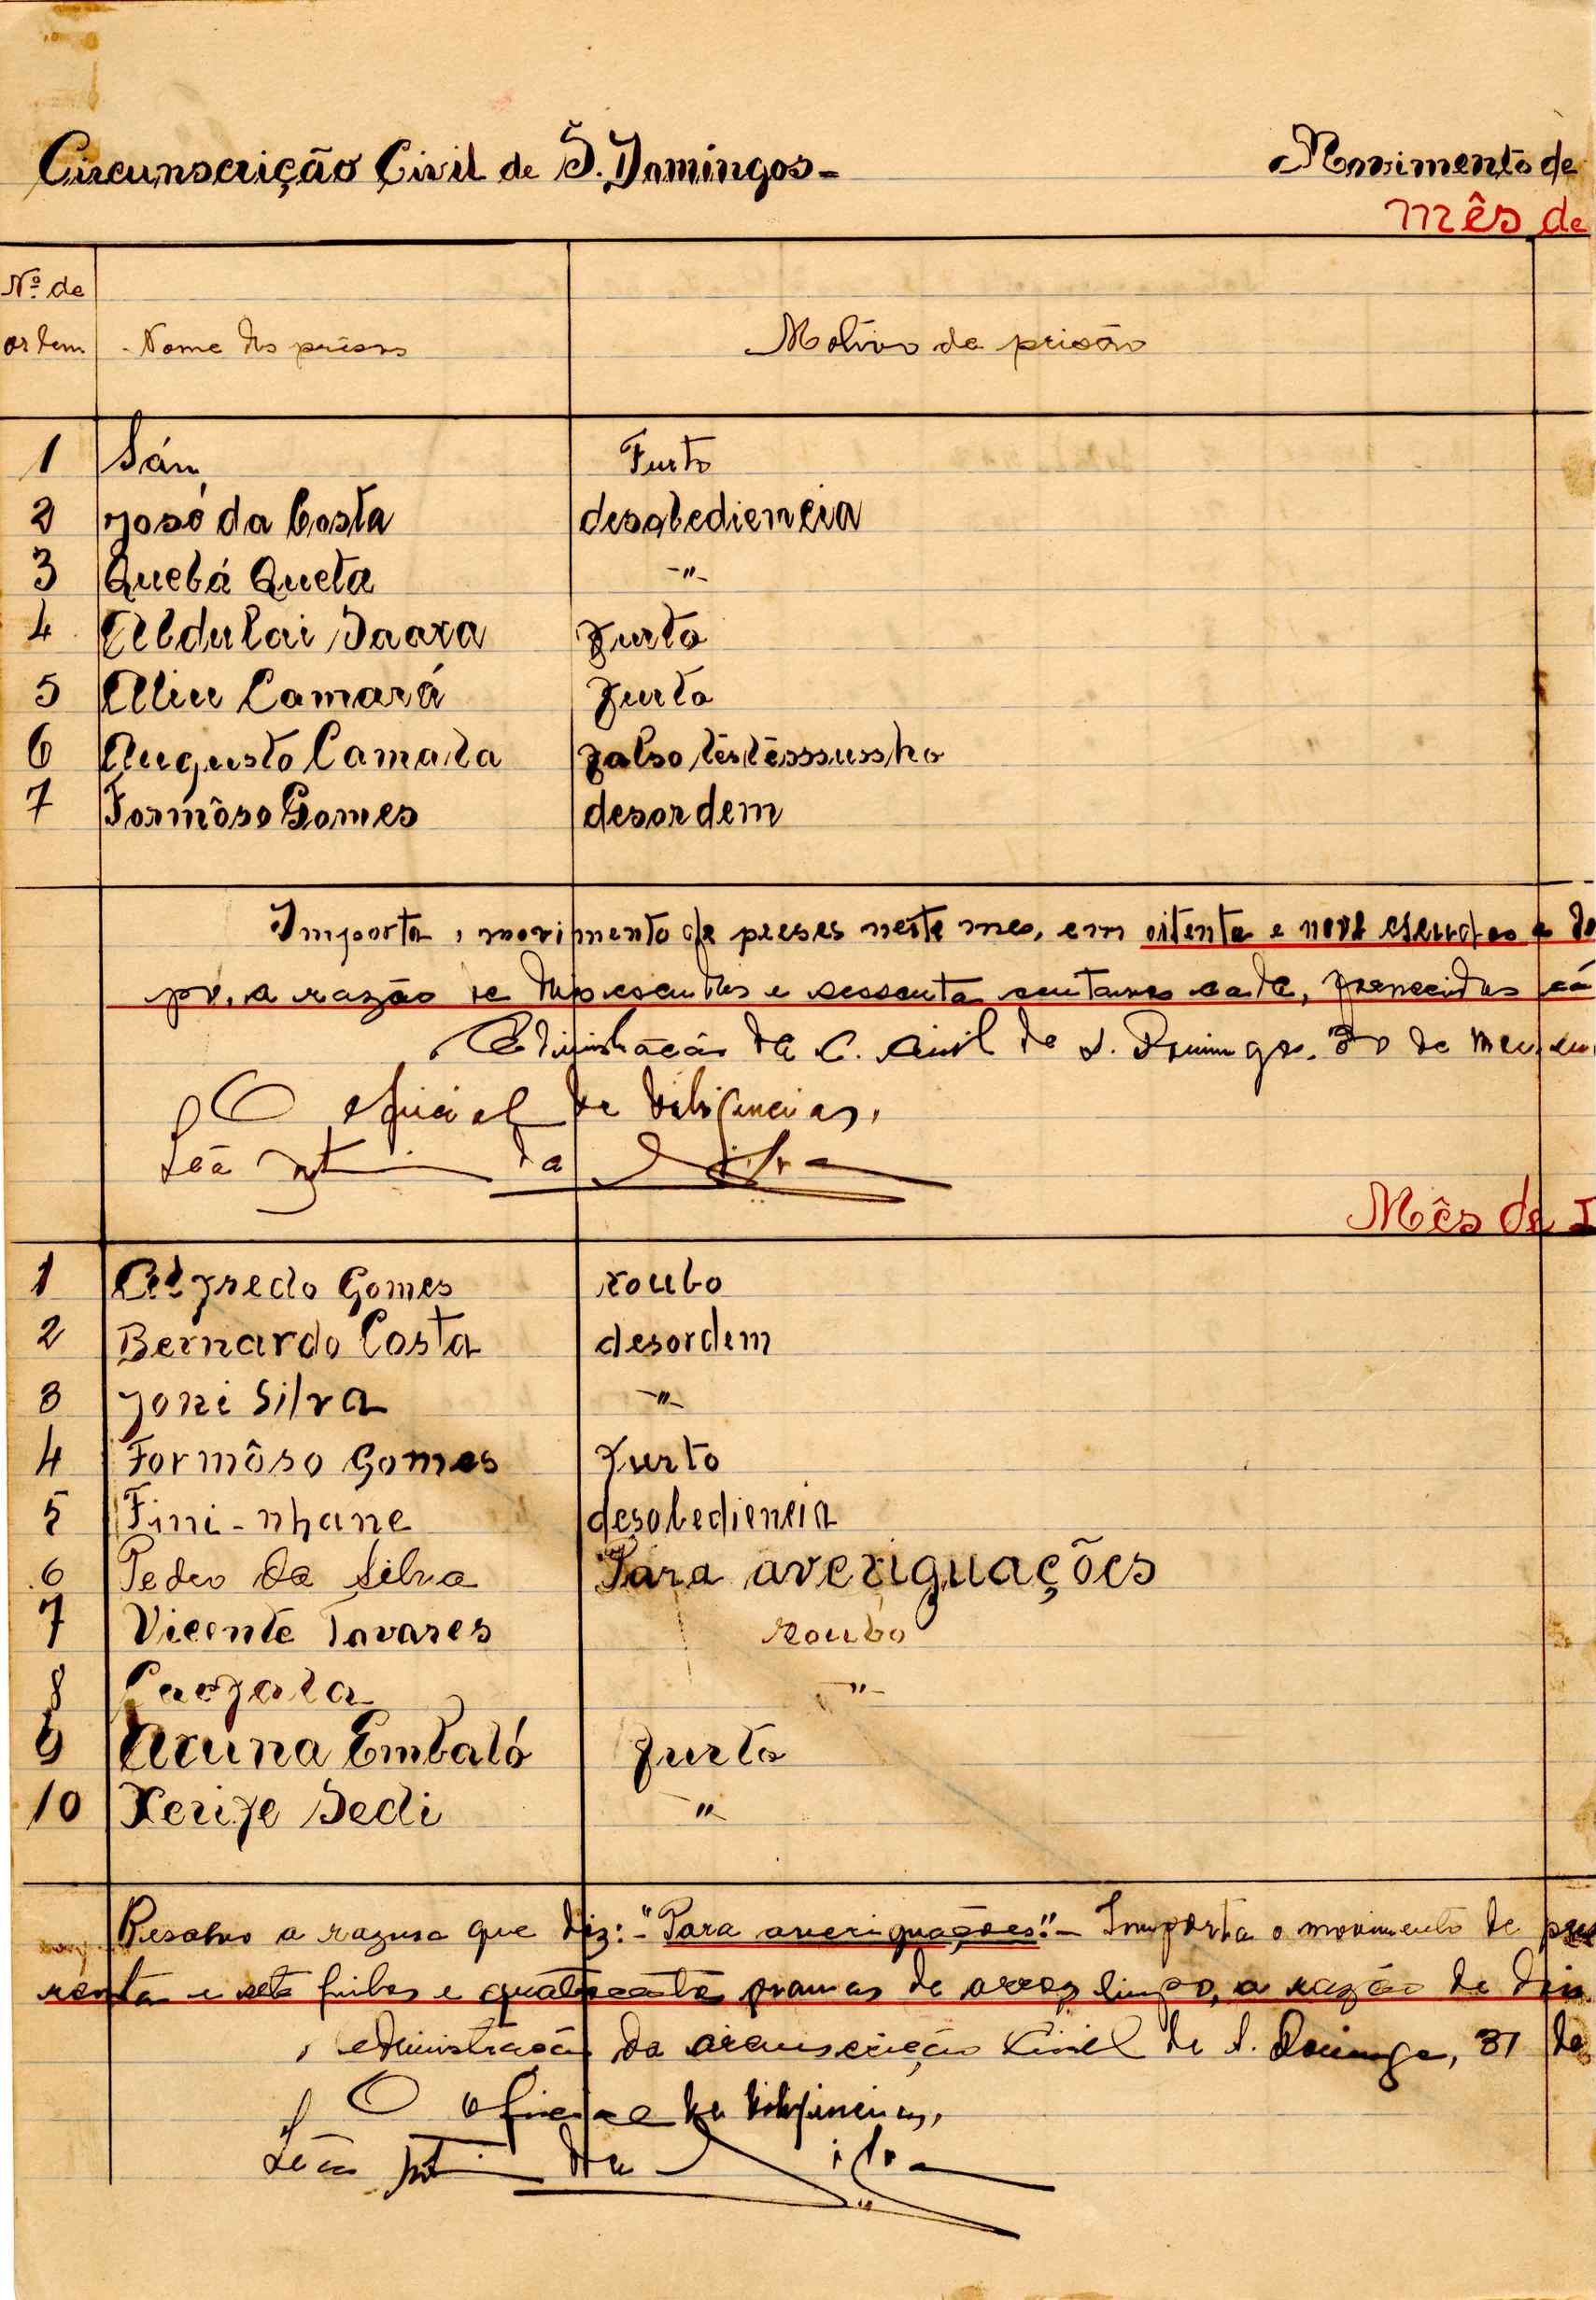 Circunscrição Civil de S. Domingos -
Movimento de
Mês de
Nº de ordem
Nome dos prêsos
Motivo da prisão
1 Sán Furto
2 José da Costa desobediencia
3 Quebá Queta -"-
4 Abdulai Saara furto
5 Aliu Camará furto
6 Augusto Camara falso
7 Formôso Gomes desordem
Importa o movimento de preses neste mes, em oitenta e nove escudos e
a razão de escudos e sessenta centavos cada, fornecidos
Administração da C. Civil de S. Domingos, 30 de
O oficial de diligencias,
da Silva
Mês de
1 Alfredo Gomes roubo
2 Bernardo Costa desordem
3 Joni Silva -"-
4 Formôso Gomes furto
5 Fini-nhane desobediencia
6 Pedro da Silva Para averiguações
7 Vicente Tavares Roubo
8 -"-
9 Aruna Embaló furto
10 Xerife Sedi "
Resalvo a razura que diz: - "Para averiguações". - Importa o movimento de
renta e sete quilos e quatrocentos gramas de arroz limpo, a razão de
Administração da circunscrição Civil de S. Domingos, 31 de
O oficial de diligencias,
da Silva